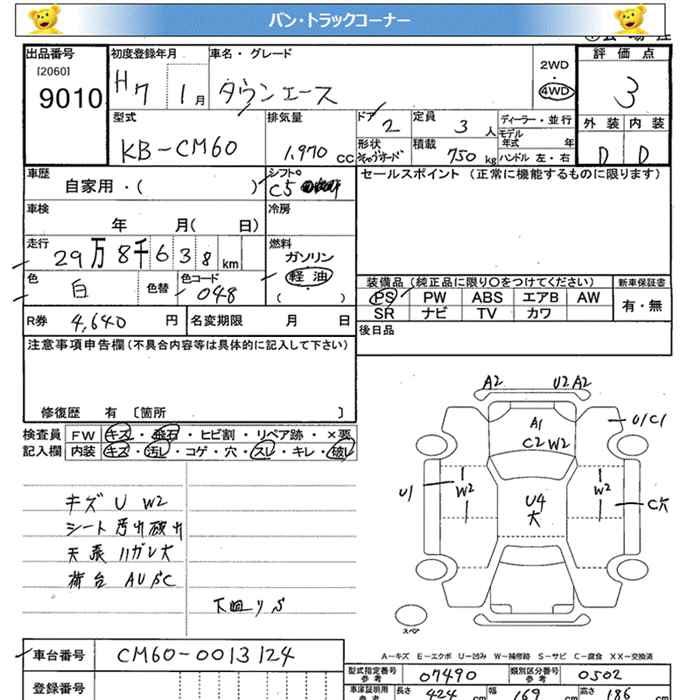 バン・トラックコーナー
出品番号
[2060]
9010
初度登録年月
H7 1月
車名・グレード
タウンエース
2WD
4WD
評価点
3
外装 内装
D D
型式
KB-CM60
排気量
1,970 CC
ドア
2
定員
3 人
形状
積載
750 kg
ディーラー・並行
モデル年式 年
ハンドル 左・右
車歴
自家用・( )
シフト
C5
セールスポイント(正常に機能するものに限ります)
車検
年 月( 日)
冷房
走行
29万8千638km
燃料
ガソリン
軽油
( )
色
白
色替
色コード
048
装備品(純正品に限り〇をつけてください)
新車保証書
PS PW ABS エアB AW
SR ナビ TV カワ
有・無
R券 4,640 円
名変期限 月 日
後日品
注意事項申告欄(不具合内容等は具体的に記入して下さい)
修復歴 有 〔箇所 〕
検査員記入欄
FW キズ・飛石・ヒビ割・リペア跡・×要
内装 キズ・汚レ・コゲ・穴・スレ・キレ・破レ
A2 U2 A2
A1
C2 W2
U1C1
U1
W2
U4
大
W2
C大
キズ U W2
シート汚れ破れ
天張ハガレ大
荷台 AUSC
下回りS
スペア
A−キズ E−エクボ U−凹み W−補修跡 S−サビ C−腐食 XX−交換済
車台番号
CM60-0013124
登録番号
型式指定番号
参考
07490
類別区分番号
参考
0502
車庫証明用
参考
長さ 424 cm
幅 169 cm
高さ 186 cm